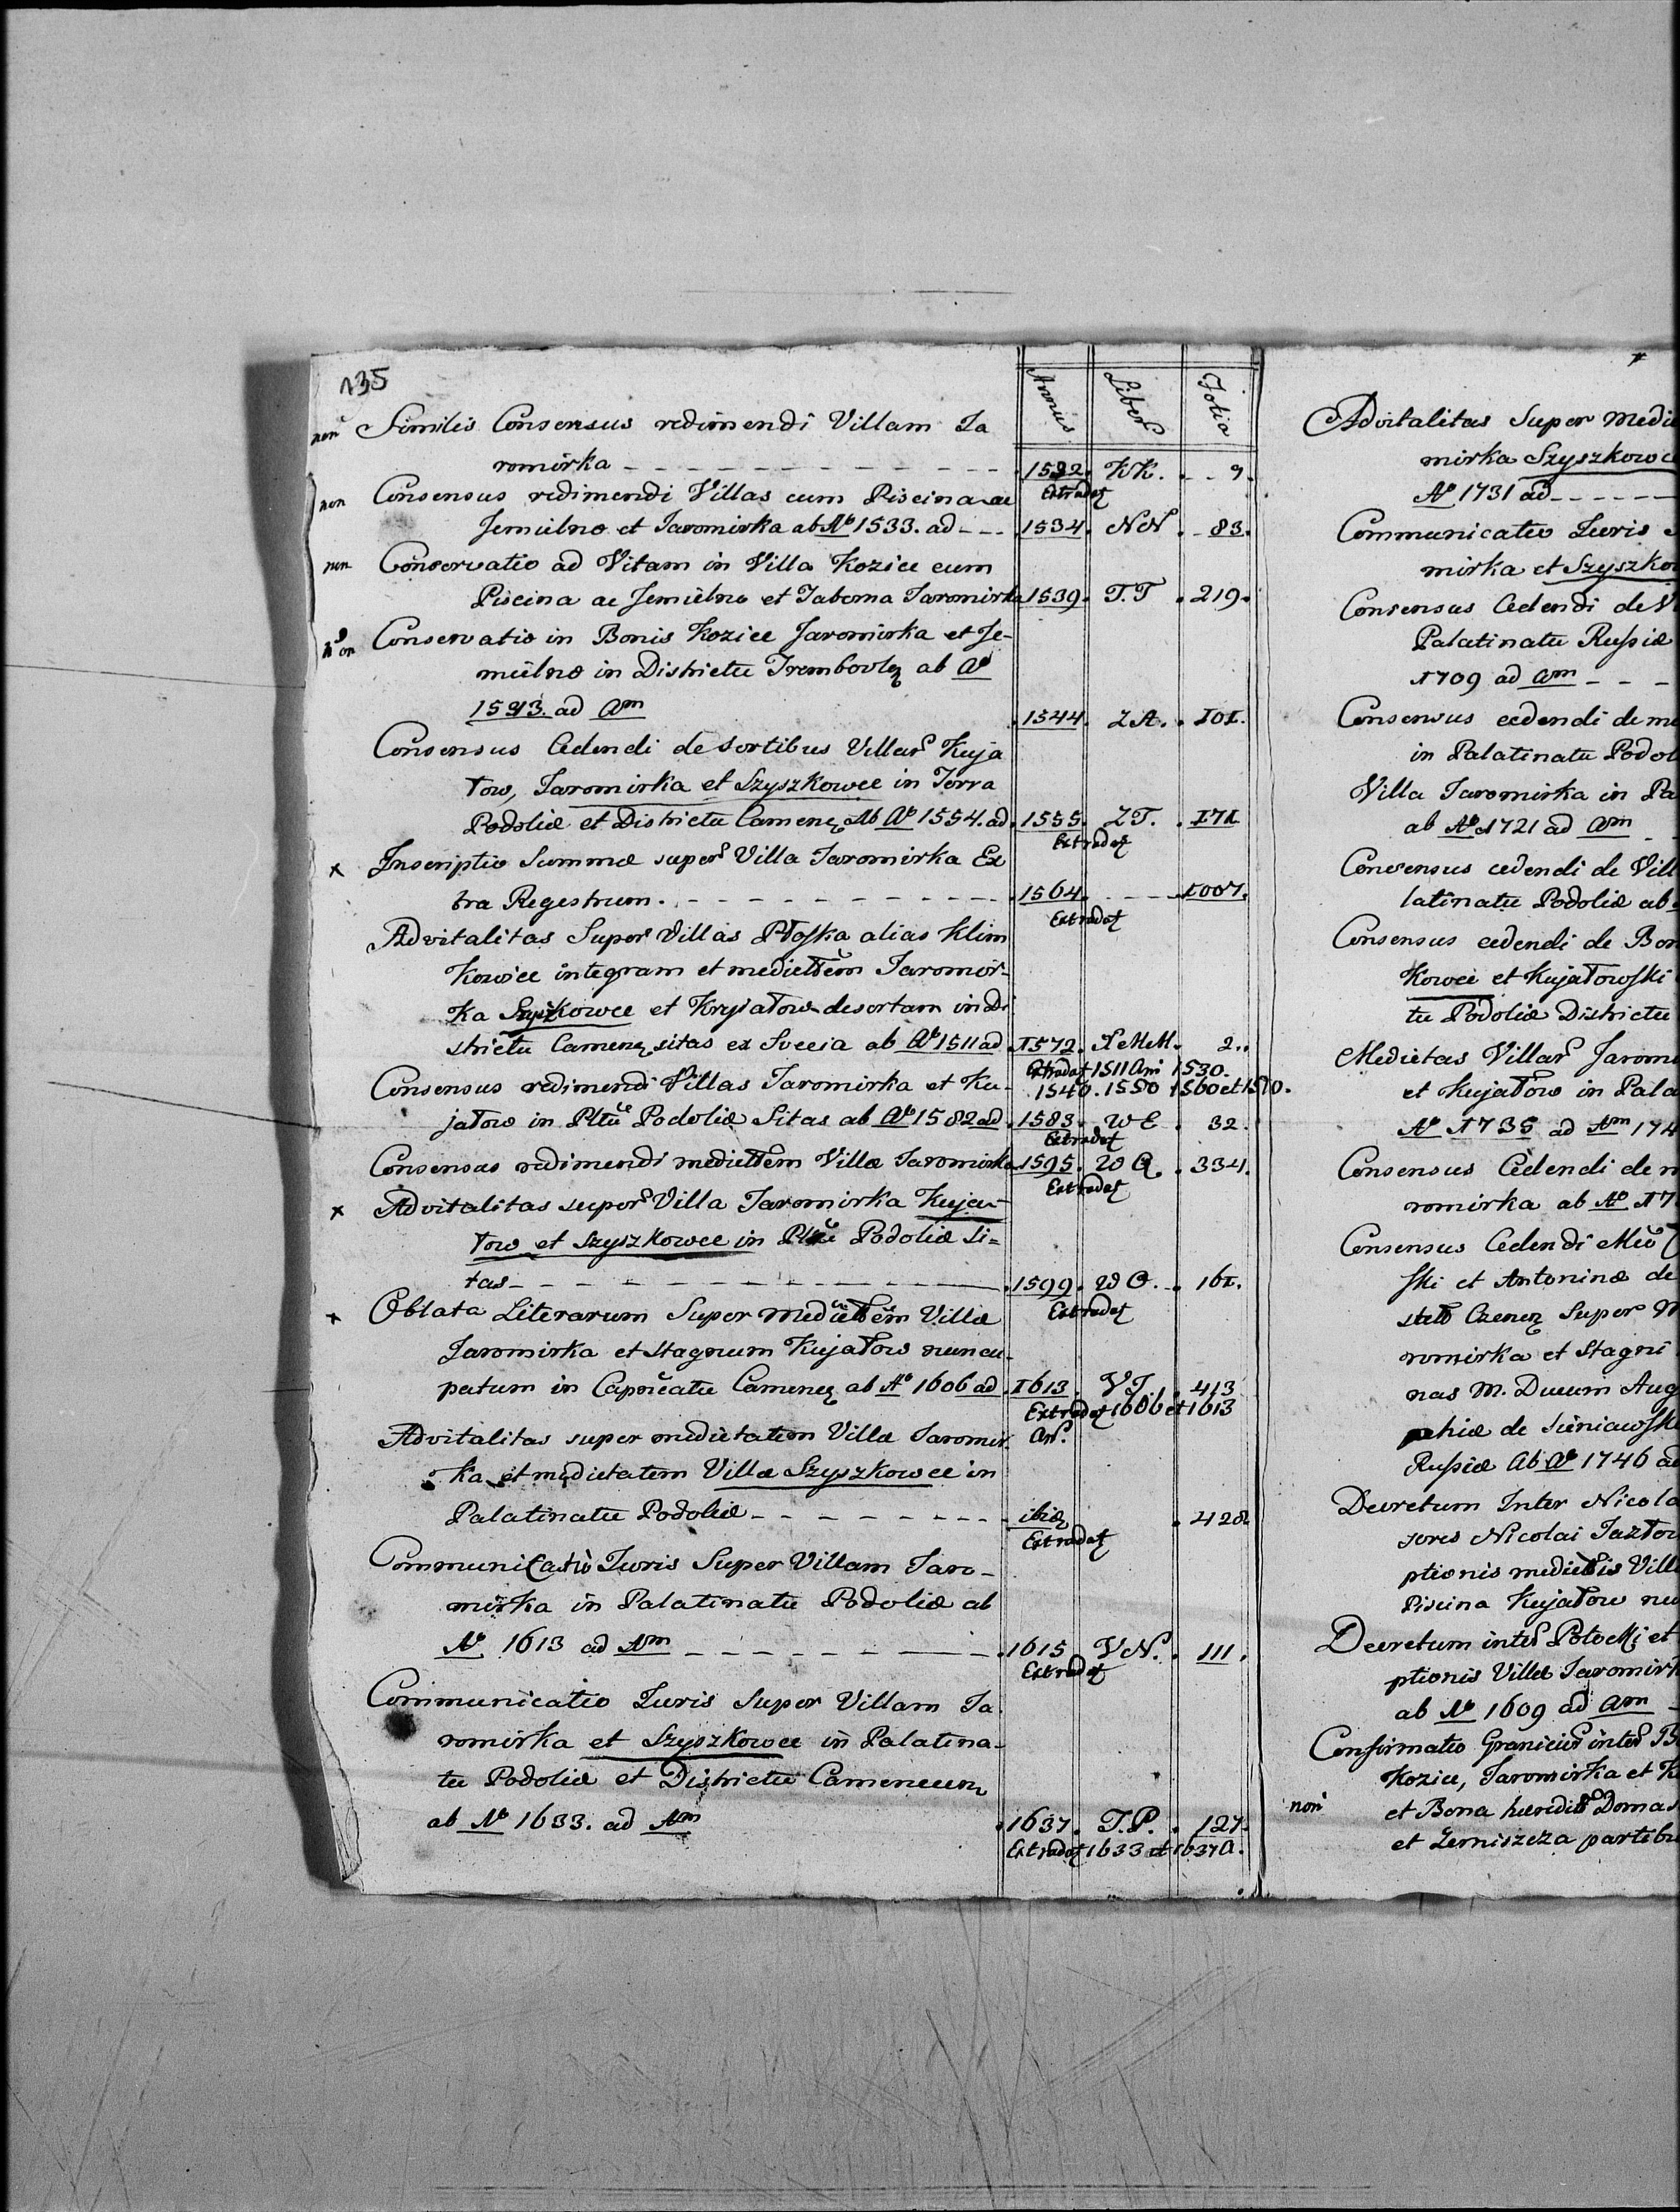 135
Annus Liber Folia
non Similis Consensus redimendi Villam Ja
romirka - - - 1532. KK. - - 9.
Extradat
non Consensus redimendi Villas cum Piscina ac
Jemielno et Jaromirka ab Ao 1533. ad - - - 1534. NN. - 83.
non Conservatio ad Vitam in Villa Kozice cum
Piscina ac Jemielno et Taberna Jaromirka 1539. T.T. 219.
non Conservatio in Bonis Kozice Jaromirka et Je-
mielno in Districtu Trembovlen ab Ao
1543. ad Am 1544. ZA. 101.
Consensus Cedendi de Sortibus Villar Kuja
tow, Jaromirka et Szyszkowce in Terra
Podoliæ et Districtu Camenen Ab Ao 1554. ad 1555. ZT. 171
Extradat
x Inscriptio Summæ super Villa Jaromirka Ex
tra Regestrum. - - - 1564. - - - 1007.
Extradat
Advitalitas Super Villas Ploska alias Klim
kowice integram et mediettem Jaromir-
ka Szyszkowce et Kryjatow desertam in Di
strictu Camenen sitas ex Svecia ab Ao 1511 ad 1572. XMM. 2..
Extradat 1511 Ami 1530.
1540. 1550 1560 et 1570.
Consensus redimendi Villas Jaromirka et Ku-
jatow in Pltu Podoliæ Sitas ab Ao 1582 ad 1583. WE. 32.
Extradat
Consensus redimendi mediettem Villæ Jaromirka 1595. WQ. 334.
Extradat
x Advitalitas super Villa Jaromirka Kuja-
tow et Szyszkowce in Pltu Podoliæ Si=
tas - - - 1599. WO. 161.
Extradat
x Oblata Literarum Super Mediettem Villæ
Jaromirka et Stagnum Kujatow nuncu-
patum in Capneatu Camenen ab Ao 1606 ad 1613. VJ. 413
Extradat 1606 et 1613
An.
Advitalitas super medietatem Villæ Jaromir-
ka et medietatem Villæ Szyszkowce in
Palatinatu Podoliæ - - - ibid 428.
Extradat
Communicatio Juris Super Villam Jaro-
mirka in Palatinatu Podoliæ ab
Ao 1613 ad Am - - - 1615 VN. 111.
Extradat
Communicatio Juris Super Villam Ja-
romirka et Szyszkowce in Palatina-
tu Podoliæ et Districtu Camenecen
ab Ao 1633. ad Am 1637. T.P. 127.
Extradat 1633 et 1637 A.
Advitalitas Super medie
mirka Szyszkowce
Ao 1731 ad - - -
Communicatio Juris
mirka et Szyszkow
Consensus Cedendi de V
Palatinatu Russiæ
1709 ad Am - - -
Consensus cedendi de me
in Palatinatu Podol
Villa Jaromirka in Pa
ab Ao 1721 ad Am -
Consensus cedendi de Vill
latinatu Podoliæ ab
Consensus cedendi de Bon
kowce et Kujatowski
tu Podoliæ Districtu
Medietas Villar Jarom
et Kujatow in Pala
Ao 1735 ad Am 174
Consensus Cedendi de m
romirka ab Ao 17
Consensus Cedendi
ski et Antoninæ de
Super M
romirka et Stagni
nas M. Ducum Aug
de Sieniawsk
Russiæ Ab Ao 1746 ad
Decretum Inter Nicola
sores Nicolai Jazlow
ptionis medietis Vill
Piscina Kujatow nu
Decretum inter Potocki et
ptionis Villæ Jaromirk
ab Ao 1609 ad Am -
Confirmatio Granicier inter B
Kozice, Jaromirka et K
non et Bona hæredit Domas
et Zerniszcza partibu